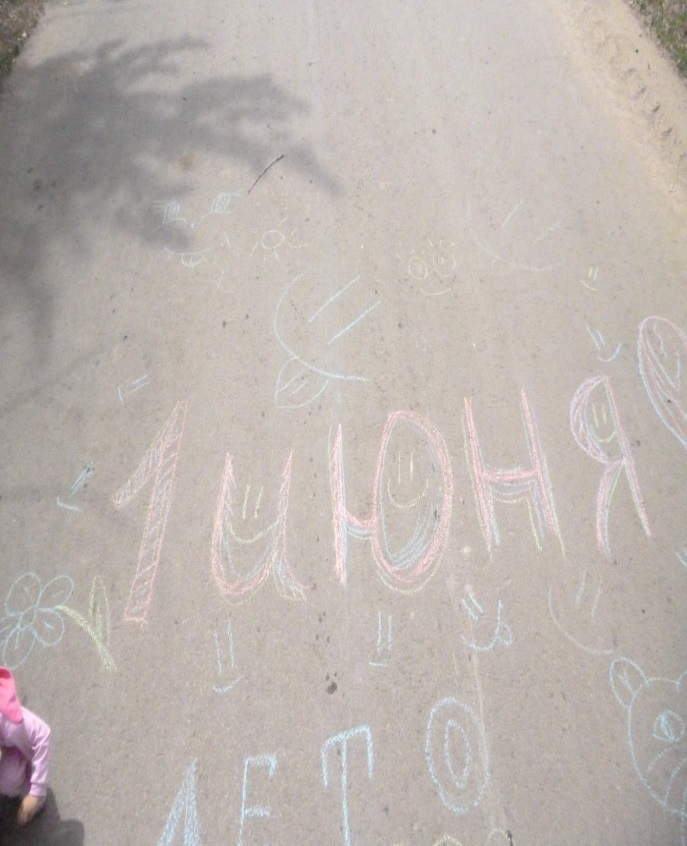 1июня
ЛЕТО